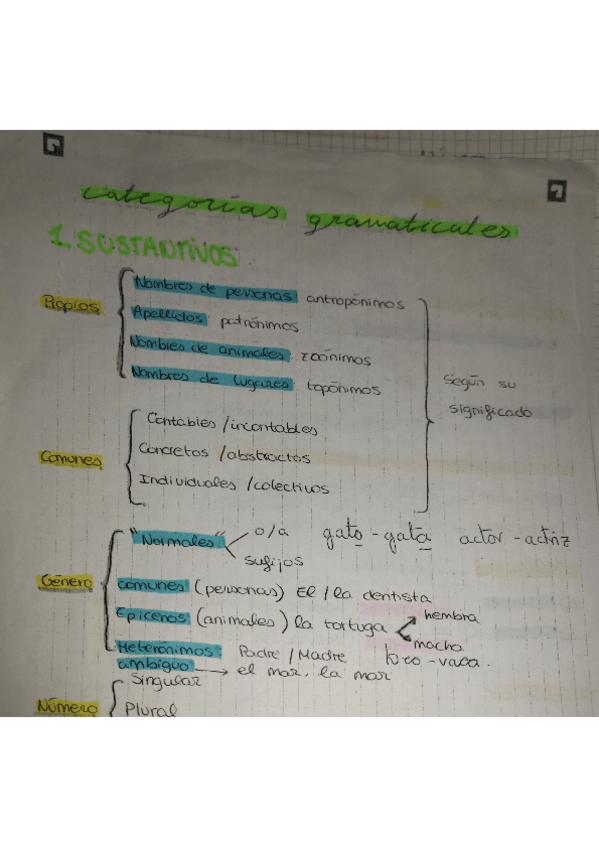 categorías gramaticales
1. SUSTANTIVOS:
Propios
Nombres de personas: antropónimos
Apellidos: patrónimos
Nombres de animales: zoónimos
Nombres de lugares: topónimos
Según su
significado
Comunes
Contables / incontables
Concretos / abstractos
Individuales / colectivos
Género
"Normales"
o/a gato - gata actor - actriz
sufijos
comunes (personas) El / la dentista
Epicenos (animales) la tortuga
hembra
macho
Heterónimos: Padre / Madre toro - vaca.
ambiguo → el mar, la mar
Número
Singular
Plural